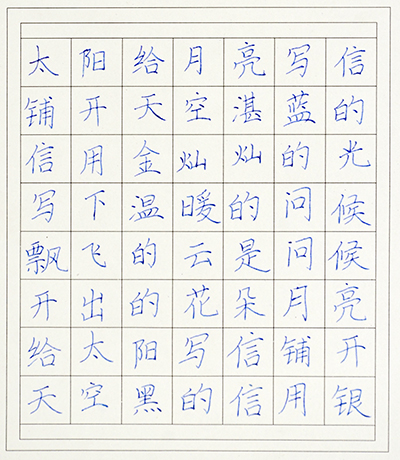 太阳给月亮写信
铺开天空湛蓝的
信用金灿灿的光
写下温暖的问候
飘飞的云是问候
开出的花朵月亮
给太阳写信铺开
天空黑的信用银